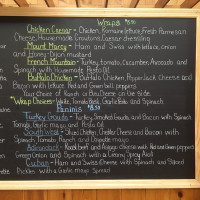 Wraps
Chicken Caesar - Chicken, Romaine lettuce, Fresh Parmesan
Cheese, Homemade Croutons, Caesar dressing
Mount Morsy - Ham and Swiss with lettuce, onion
and Honey Dijon mustard
French Mountain - Turkey, tomato, Cucumber, Avocado and
Spinach with Homemade Pesto
Buffalo Chicken - Buffalo Chicken, Pepper Jack Cheese and
Bacon with lettuce Red and Green bell peppers
Your choice of Ranch or Bleu Cheese on the side
Wrap Choices - White, Tomato Basil, Garlic Pesto and Spinach
Paninis
Turkey Gouda - Turkey, Smoked Gouda and Bacon with Spinach
Tomato, Garlic mayo and
South West - Sliced Chicken, Cheddar Cheese and Bacon with
Spinach Tomato, Ranch and Chipotle mayo
Adirondack - Roast Beef and Asiago cheese with Red and Green peppers
Green Onion and Spinach with a Creamy Spicy Aioli
Cuban - Ham and Swiss Cheese with Spinach and Sliced
Pickles with a Garlic mayo Spread